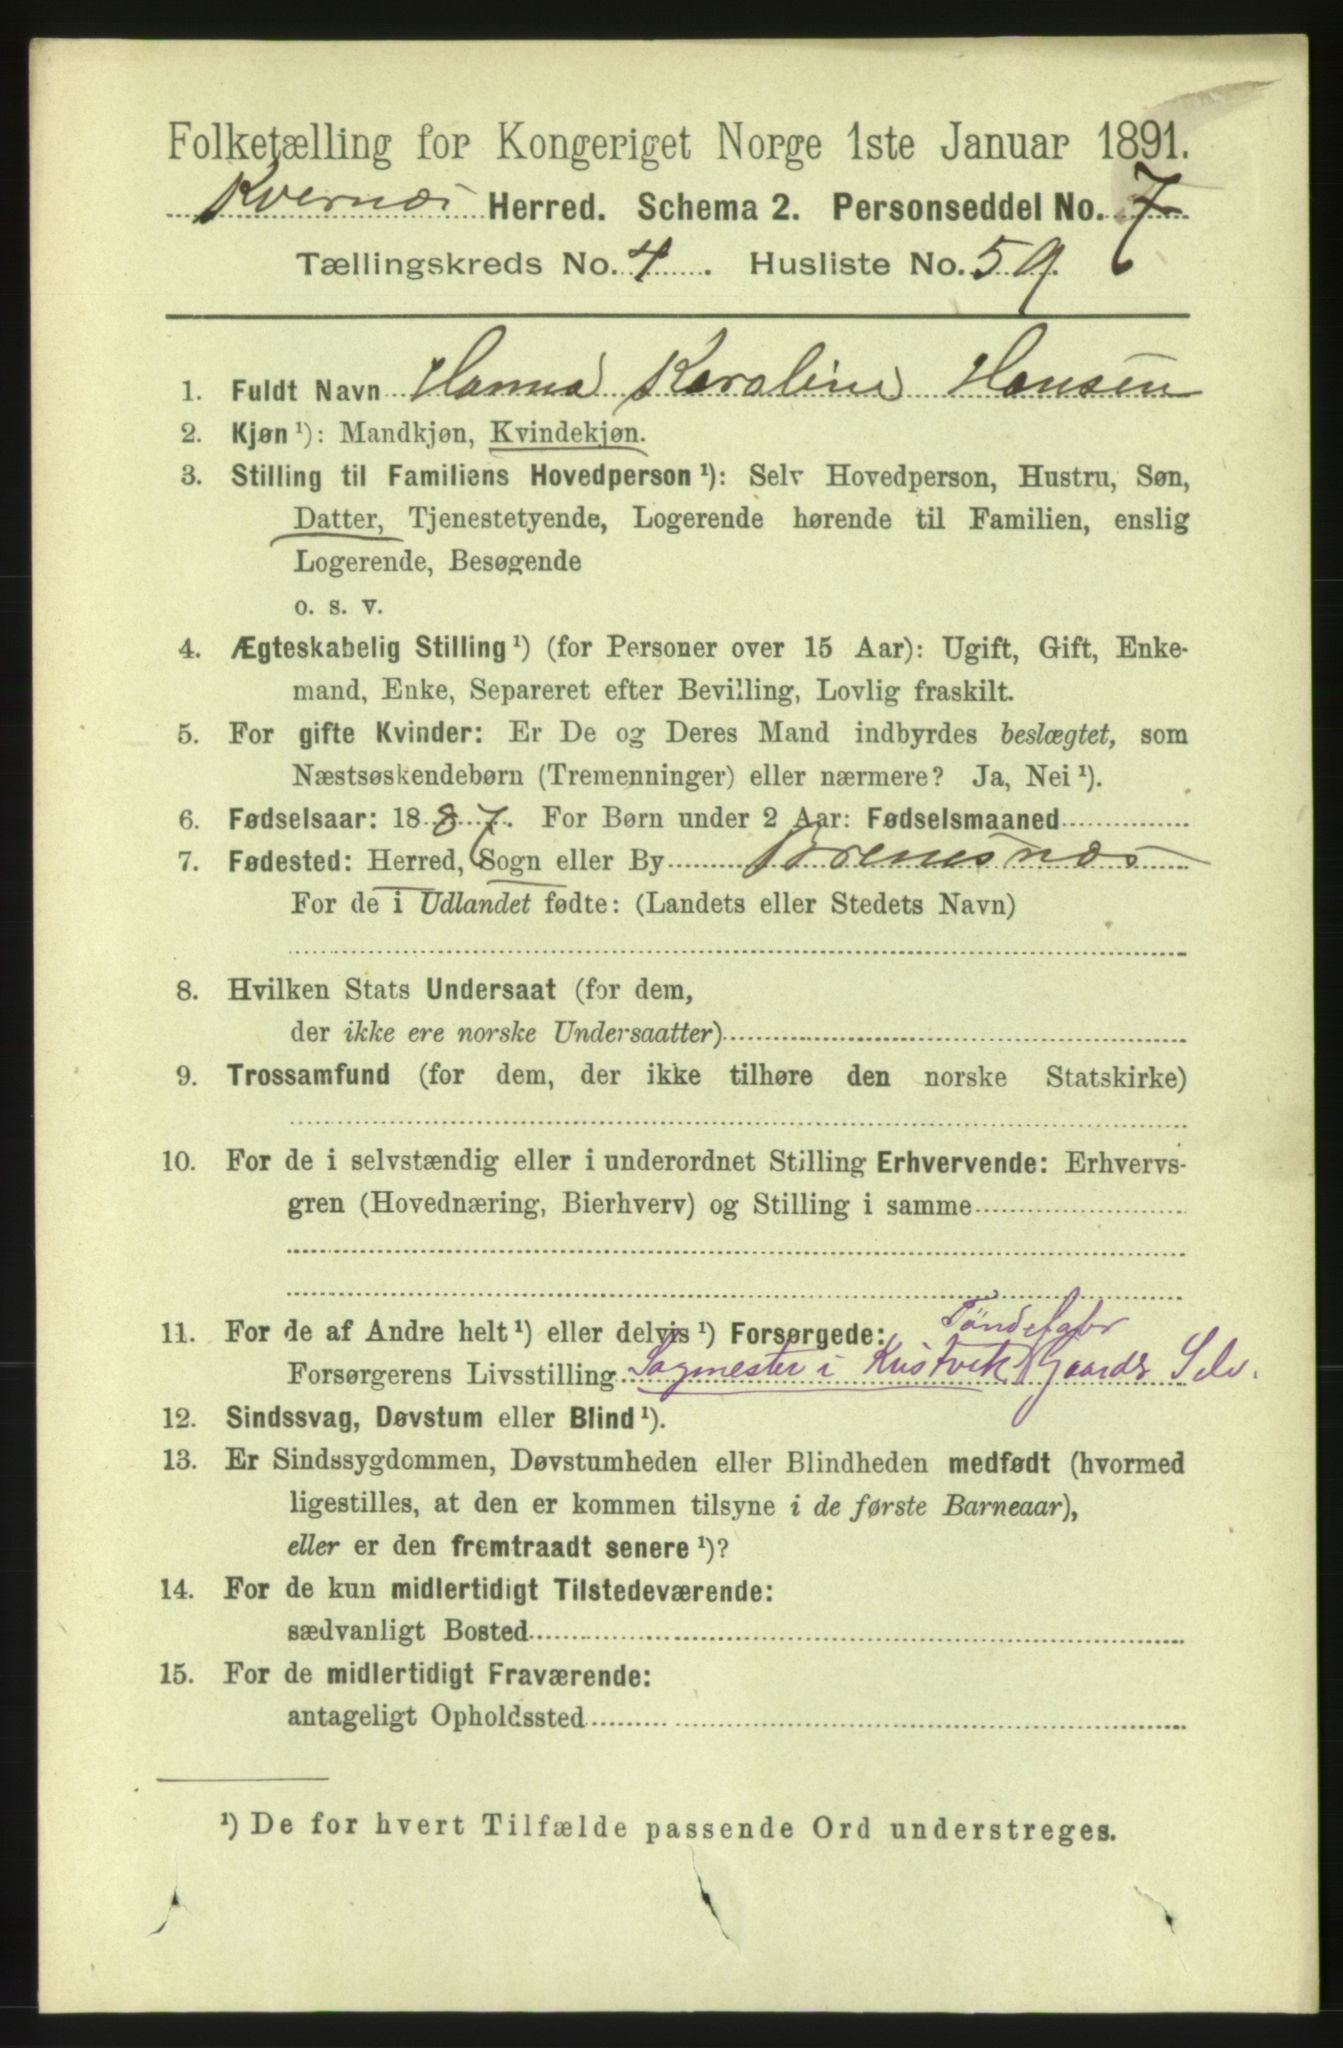 Folketælling for Kongeriget Norge 1ste Januar 1891.
Kvernæs Herred. Schema 2. Personseddel No. 7
Tællingskreds No. 4. Husliste No. 59.
1. Fuldt Navn Hanna Karoline Hansen
2. Kjøn ¹): Mandkjøn, Kvindekjøn.
3. Stilling til Familiens Hovedperson ¹): Selv Hovedperson, Hustru, Søn,
Datter, Tjenestetyende, Logerende hørende til Familien, enslig
Logerende, Besøgende
o. s. v.
4. Ægteskabelig Stilling ¹) (for Personer over 15 Aar): Ugift, Gift, Enke-
mand, Enke, Separeret efter Bevilling, Lovlig fraskilt.
5. For gifte Kvinder: Er De og Deres Mand indbyrdes beslægtet, som
Næstsøskendebørn (Tremenninger) eller nærmere? Ja, Nei ¹).
6. Fødselsaar: 1887. For Børn under 2 Aar: Fødselsmaaned
7. Fødested: Herred, Sogn eller By Bremesnæs
For de i Udlandet fødte: (Landets eller Stedets Navn)
8. Hvilken Stats Undersaat (for dem,
der ikke ere norske Undersaatter)
9. Trossamfund (for dem, der ikke tilhøre den norske Statskirke)
10. For de i selvstændig eller i underordnet Stilling Erhvervende: Erhvervs-
gren (Hovednæring, Bierhverv) og Stilling i samme
11. For de af Andre helt ¹) eller delvis ¹) Forsørgede: Töndefabr
Forsørgerens Livsstilling Sagmester i Kristvik Gaards
12. Sindssvag, Døvstum eller Blind ¹).
13. Er Sindssygdommen, Døvstumheden eller Blindheden medfødt (hvormed
ligestilles, at den er kommen tilsyne i de første Barneaar),
eller er den fremtraadt senere ¹)?
14. For de kun midlertidigt Tilstedeværende:
sædvanligt Bosted
15. For de midlertidigt Fraværende:
antageligt Opholdssted
¹) De for hvert Tilfælde passende Ord understreges.